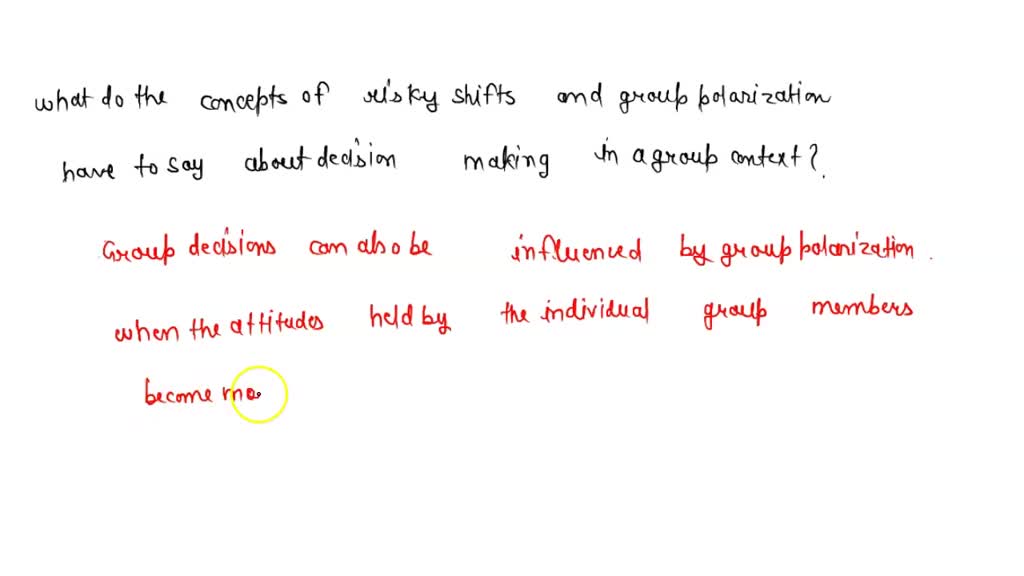 what do the concepts of risky shifts and group polarization
have to say about decision making in a group context?
Group decisions can also be influenced by group polarization.
when the attitudes held by the individual group members
become mo